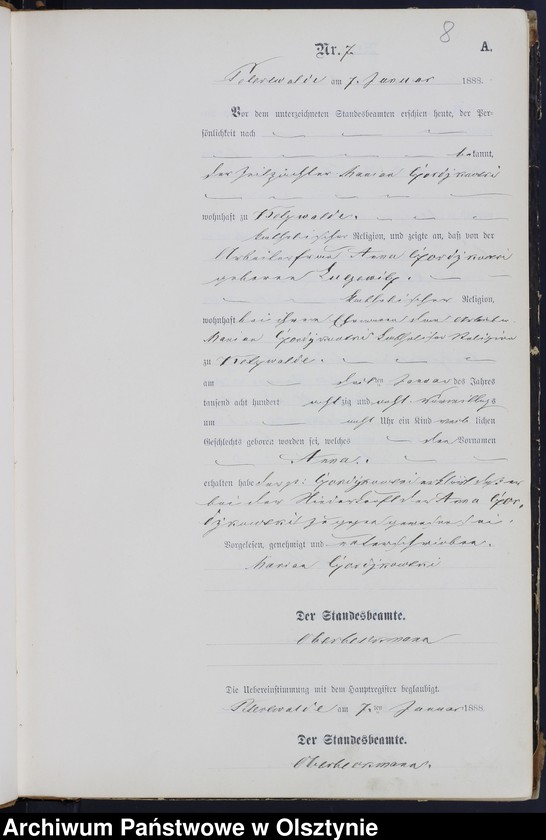 8
Nr. 7. A.
Peterswalde am 7. Januar 1888.
Vor dem unterzeichneten Standesbeamten erschien heute, der Per-
sönlichkeit nach
bekannt,
der Marian
wohnhaft zu
katholischer Religion, und zeigte an, daß von der
Arbeiterfrau Anna
geborenen
katholischer Religion,
wohnhaft bei ihrem Ehemann dem
Marian katholischer Religion
zu
am Januar des Jahres
tausend acht hundert achtzig und acht Vormittags
um acht Uhr ein Kind weiblichen
Geschlechts geboren worden sei, welches den Vornamen
Anna
erhalten habe. erklärt daß er
bei der Niederkunft der Anna
zugegen gewesen sei.
Vorgelesen, genehmigt und unterschrieben.
Marian
Der Standesbeamte.
Oberbeckmann
Die Uebereinstimmung mit dem Hauptregister beglaubigt.
Peterswalde am 7. ten Januar 1888.
Der Standesbeamte.
Oberbeckmann.
Archiwum Państwowe w Olsztynie